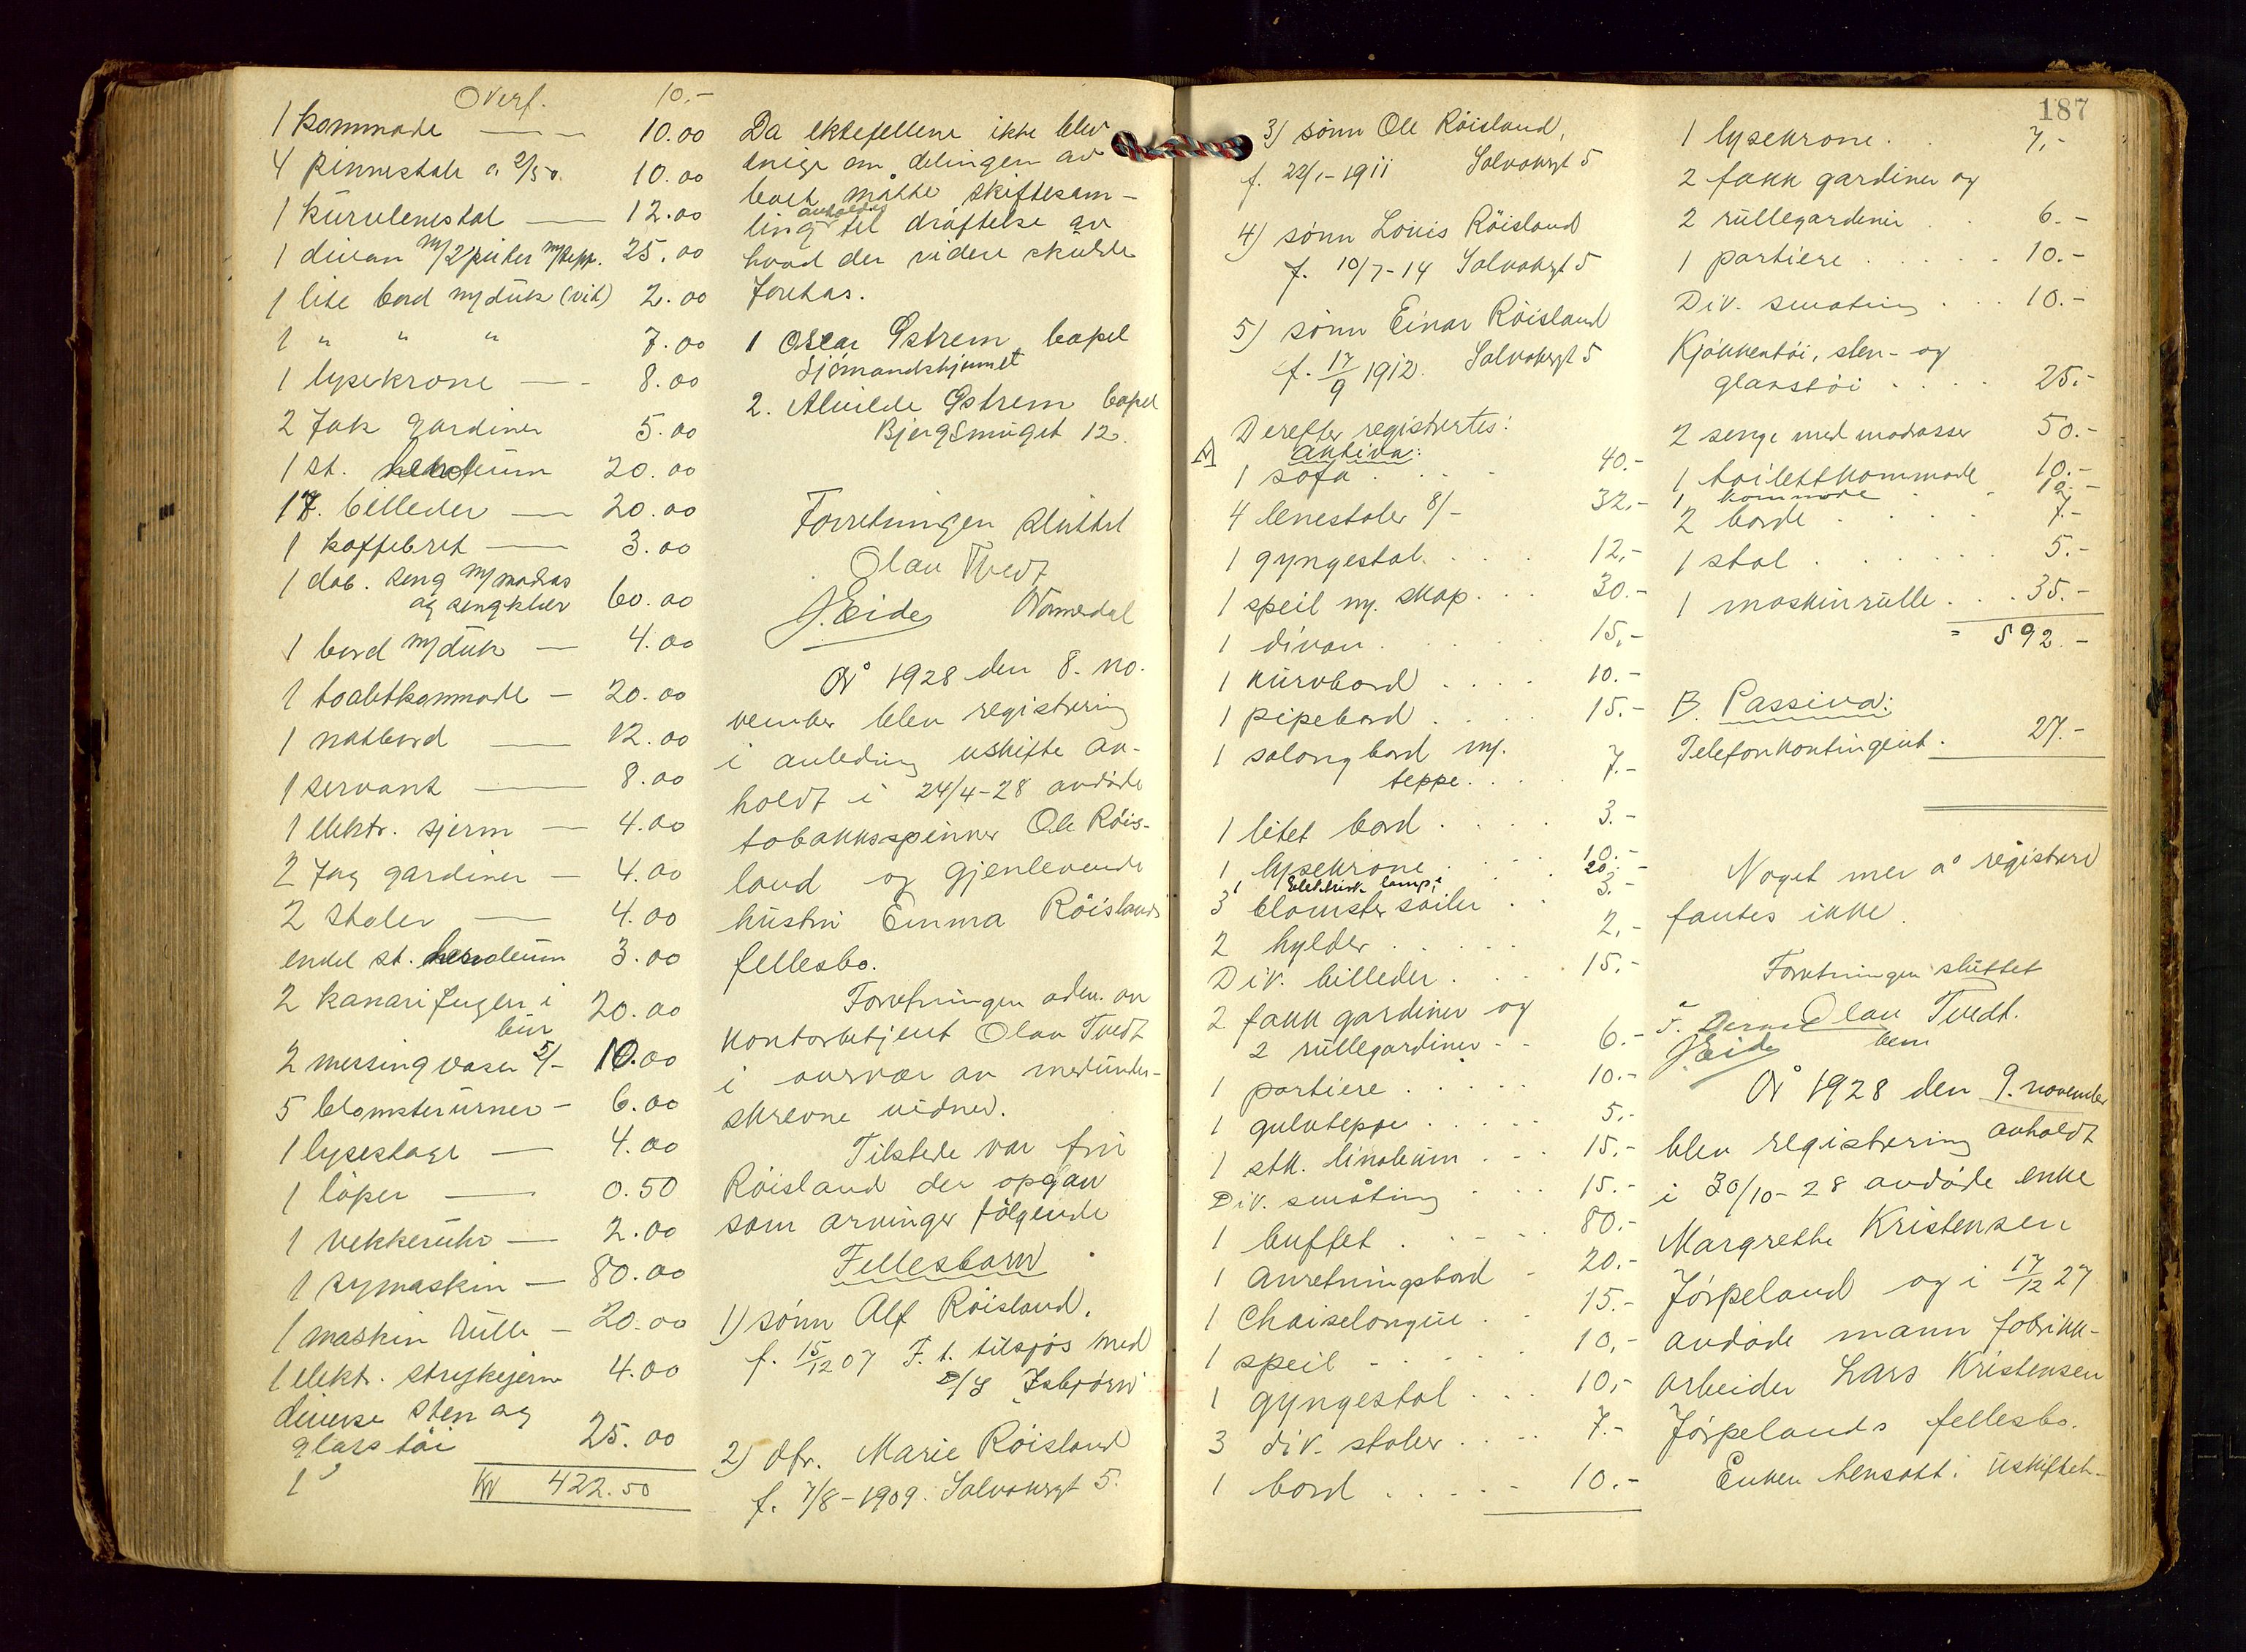 Overf. 10.-
1 kommode 10.00
4 pinnestole a 2/50. 10.00
1 kurvlenestol 12.00
1 divan m/2 puter m/tepp. 25.00
1 lite bord m/duk (vit) 2.00
1 " " " 7.00
1 lysekrone 8.00
2 Fak gardiner 5.00
1 st. linoleum 20.00
17. billeder 20.00
1 kaffebret 3.00
1 dob. seng m/madras
og sengklær 60.00
1 bord m/duk 4.00
1 toaletkommode 20.00
1 natbord 12.00
1 servant 8.00
1 elektr. sjerm 4.00
2 Fag gardiner 4.00
2 stoler 4.00
endel st. linoleum 3.00
2 kanarifugler i
bur 20.00
2 messingvaser 5/- 10.00
5 blomsterurner 6.00
1 lysestage 4.00
1 löper 0.50
1 vekkeruhr 2.00
1 symaskin 80.00
1 maskin rulle 20.00
1 elektr. strykejern 4.00
diverse sten og
glarstöi 25.00
1
Kr 422.50
Da ektefellene ikke blev
enige om delingen av
boet måtte skiftesam-
ling avholdes til dröftelse av
hvad der videre skulde
foretas.
1 Oscar Östrem, bopel
Sjömandshjemmet
2. Alvilde Östrem bopel
Bjergsmuget 12.
Forretningen sluttet
Olav Tvedt
J. Eide
År 1928 den 8. no-
vember blev registrering
i anledning uskifte av-
holdt i 24/4-28 avdöde
tobakksspinner Ole Röis-
land og gjenlevende
hustru Emma Röislands
fellesbo.
Forretningen adm. av
kontorbetjent Olav Tvedt
i overvær av medunder-
skrevne vidner.
Tilstede var fru
Röisland der opgav
som arvinger fölgende
Fellesbarn
1) sönn Alf Röisland.
f. 15/12 07 F. t. tilsjös med
D/S Isbjörn
2) dtr. Marie Röisland
f. 7/8-1909. Solvohrgt 5.
187
3) sönn Ole Röisland,
f. 22/1-1911 Solvohrgt 5
4) sönn Louis Röisland
f. 10/7-14 Solvohrgt 5
5) sönn Einar Röisland
f. 17/9 1912. Solvohrgt 5
Derefter registrertes:
A Aktiva:
1 sofa 40.-
4 lenestoler 8/- 32.-
1 gyngestol 12.-
1 speil m. skap 30.-
1 divan 15.-
1 kurvbord 10.-
1 pipebord 15.-
1 salongbord m.
teppe 7.-
1 litet bord 3.-
1 lysekrone 10.-
1 elektrisk lampe 20.-
3 blomstersöiler 3.-
2 hylder 2.-
Div. billeder 15.-
2 fakk gardiner og
2 rullegardiner 6.-
1 portiere 10.-
1 gulvteppe 5.-
1 stk. linoleum 15.-
Div. småting 15.-
1 buffet 80.-
1 Anretningsbord 20.-
1 Chaiselongue 15.-
1 speil 10.-
1 gyngestol 10.-
3 div. stoler 7.-
1 bord 10.-
1 lysekrone 7.-
2 fakk gardiner og
2 rullegardiner 6.-
1 portiere 10.-
Div. småting 10.-
Kjökkentöi, sten- og
glasstöi 25.-
2 senge med madrasser 50.-
1 toilettkommode 10.-
1 kommode 10.-
2 borde 7.-
1 stol 5.-
1 maskinrulle 35.-
= 592.-
B. Passiva:
Telefonkontingent 27.-
Noget mer å registrere
fantes ikke.
Forretningen sluttet
Olav Tvedt.
J Eide bem
År 1928 den 9. november
blev registrering avholdt
i 30/10-28 avdöde enke
Margrethe Kristensen
Jörpeland og i 17/12 27
avdöde mann fabrikk-
arbeider Lars Kristensen
Jörpelands fellesbo.
Enken hensatt i uskiftet